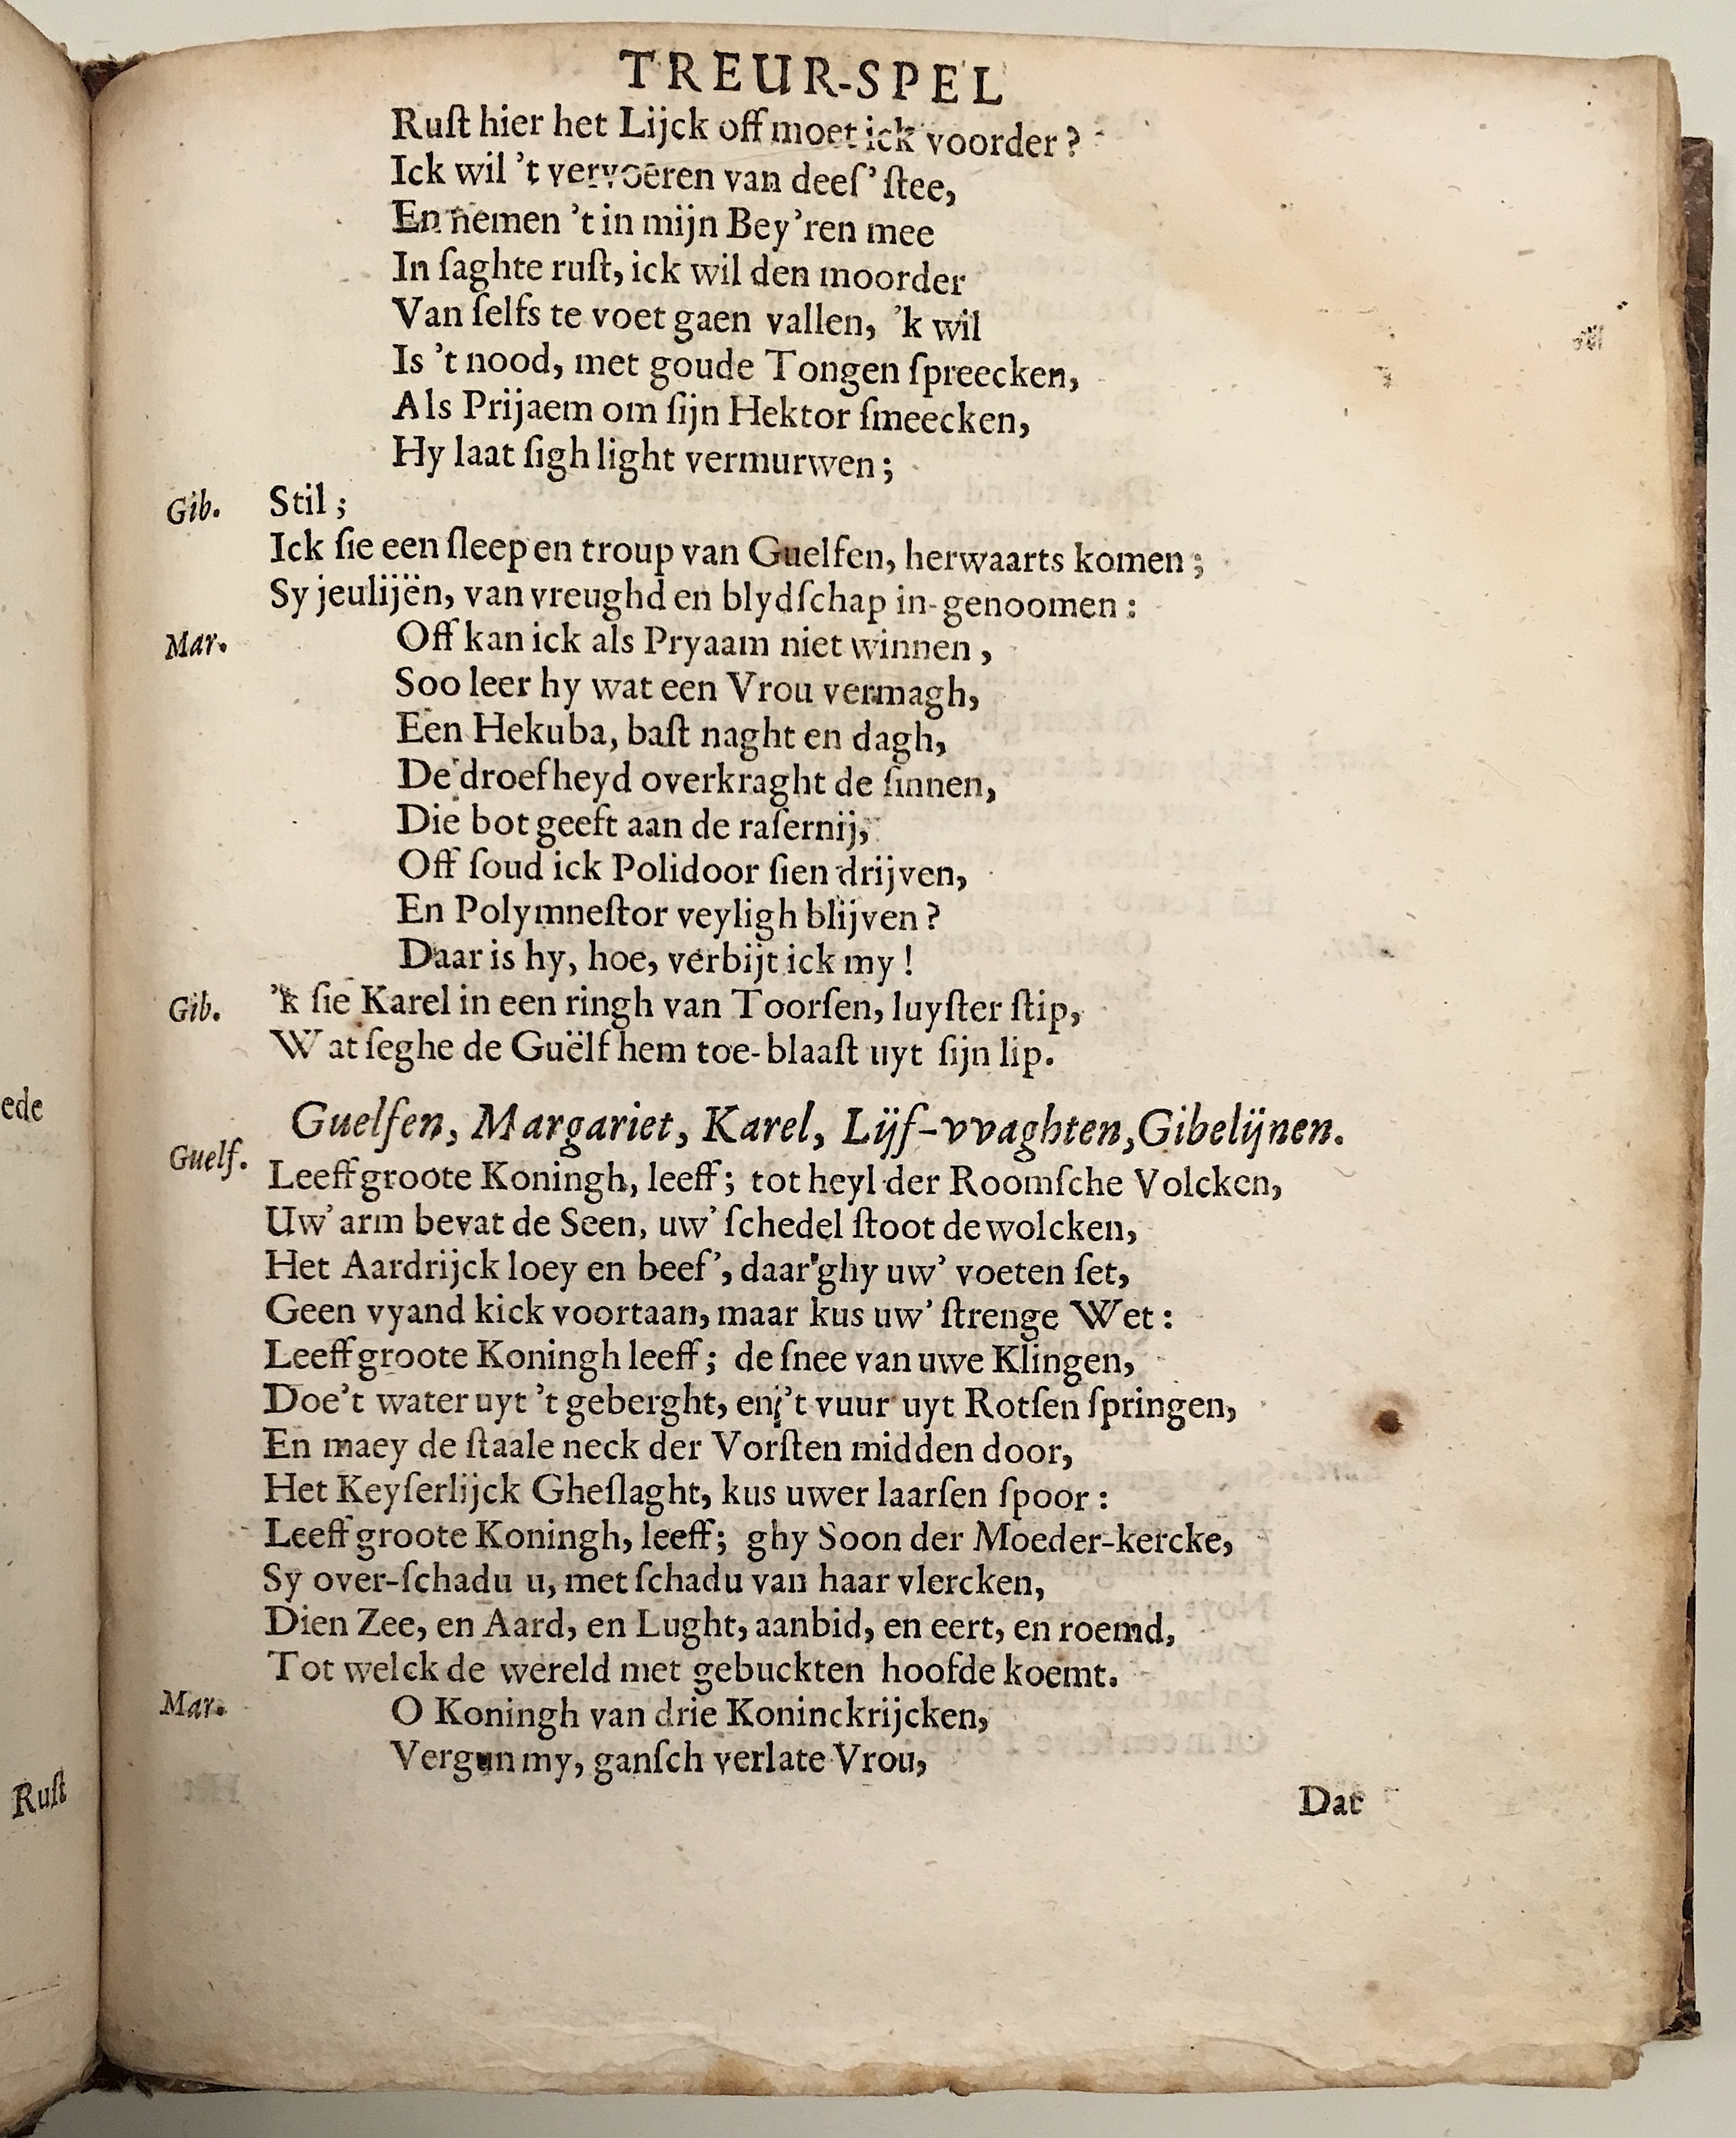 TREUR-SPEL
Ruſt hier het Lijck off moet ick voorder?
Ick wil 't vervoeren van deeſ' ſtee,
En nemen 't in mijn Bey'ren mee
In ſaghte ruſt, ick wil den moorder
Van ſelfs te voet gaen vallen, 'k wil
Is 't nood, met goude Tongen ſpreecken,
Als Prijaem om ſijn Hektor ſmeecken,
Hy laat ſigh light vermurwen;
Gib. Stil;
Ick ſie een ſleep en troup van Guelfen, herwaarts komen;
Sy jeulijën, van vreughd en blydſchap in-genoomen:
Mar. Off kan ick als Pryaam niet winnen,
Soo leer hy wat een Vrou vermagh,
Een Hekuba, baſt naght en dagh,
De droefheyd overkraght de ſinnen,
Die bot geeft aan de raſernij,
Off ſoud ick Polidoor ſien drijven,
En Polymneſtor veyligh blijven?
Daar is hy, hoe, verbijt ick my!
Gib. 'k ſie Karel in een ringh van Toorſen, luyſter ſtip,
Wat ſeghe de Guëlf hem toe-blaaſt uyt ſijn lip.
Guelfen, Margariet, Karel, Lijf-vvaghten, Gibelijnen.
Guelf. Leeff groote Koningh, leeff; tot heyl der Roomſche Volcken,
Uw' arm bevat de Seen, uw' ſchedel ſtoot de wolcken,
Het Aardrijck loey en beef', daar ghy uw' voeten ſet,
Geen vyand kick voortaan, maar kus uw' ſtrenge Wet:
Leeff groote Koningh leeff; de ſnee van uwe Klingen,
Doe't water uyt 't geberght, en 't vuur uyt Rotſen ſpringen,
En maey de ſtaale neck der Vorſten midden door,
Het Keyſerlijck Gheſlaght, kus uwer laarſen ſpoor:
Leeff groote Koningh, leeff; ghy Soon der Moeder-kercke,
Sy over-ſchadu u, met ſchadu van haar vlercken,
Dien Zee, en Aard, en Lught, aanbid, en eert, en roemd,
Tot welck de wereld met gebuckten hoofde koemt.
Mar. O Koningh van drie Koninckrijcken,
Vergun my, ganſch verlate Vrou,
Dat
ede
Ruſt